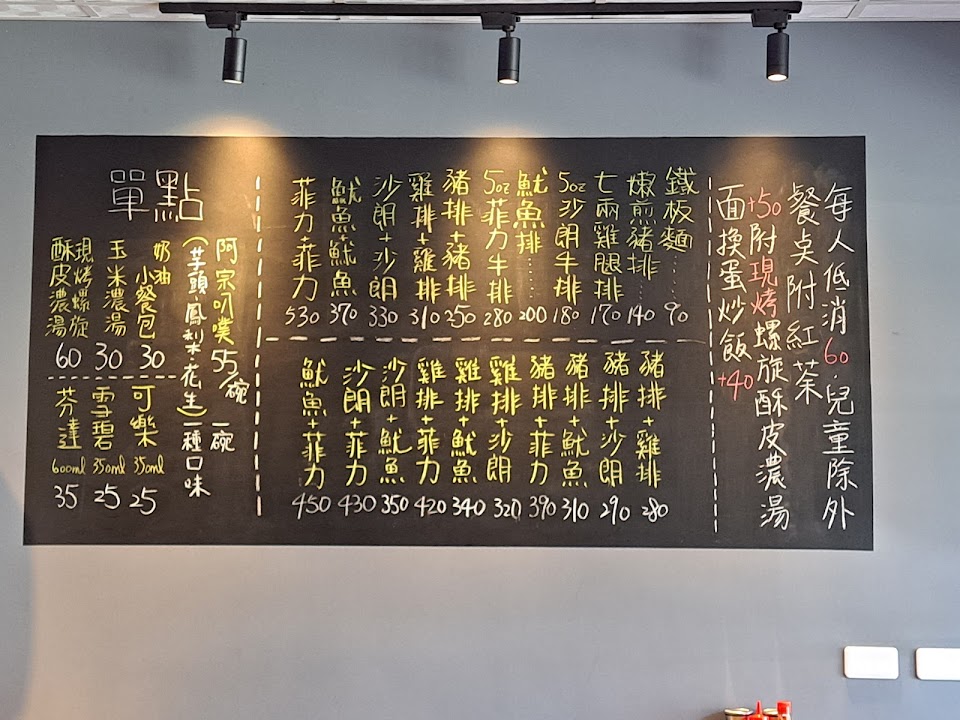 每人低消60.兒童除外
餐桌附紅茶
+50附現烤螺旋酥皮濃湯
面換蛋炒飯+40
鐵板麵......90
嫩煎豬排..140
七兩雞腿排170
5oz沙朗牛排180
魷魚排....200
5oz菲力牛排280
豬排+豬排250
雞排+雞排310
沙朗+沙朗330
魷魚+魷魚370
菲力+菲力530
豬排+雞排280
豬排+沙朗290
豬排+魷魚310
豬排+菲力390
雞排+沙朗320
雞排+魷魚340
雞排+菲力420
沙朗+魷魚350
沙朗+菲力430
魷魚+菲力450
單點
阿宗叭噗55/碗
(芋頭.鳳梨.花生)一碗一種口味
奶油小餐包30
玉米濃湯30
現烤螺旋酥皮濃湯60
可樂350ml25
雪碧350ml25
芬達600ml35